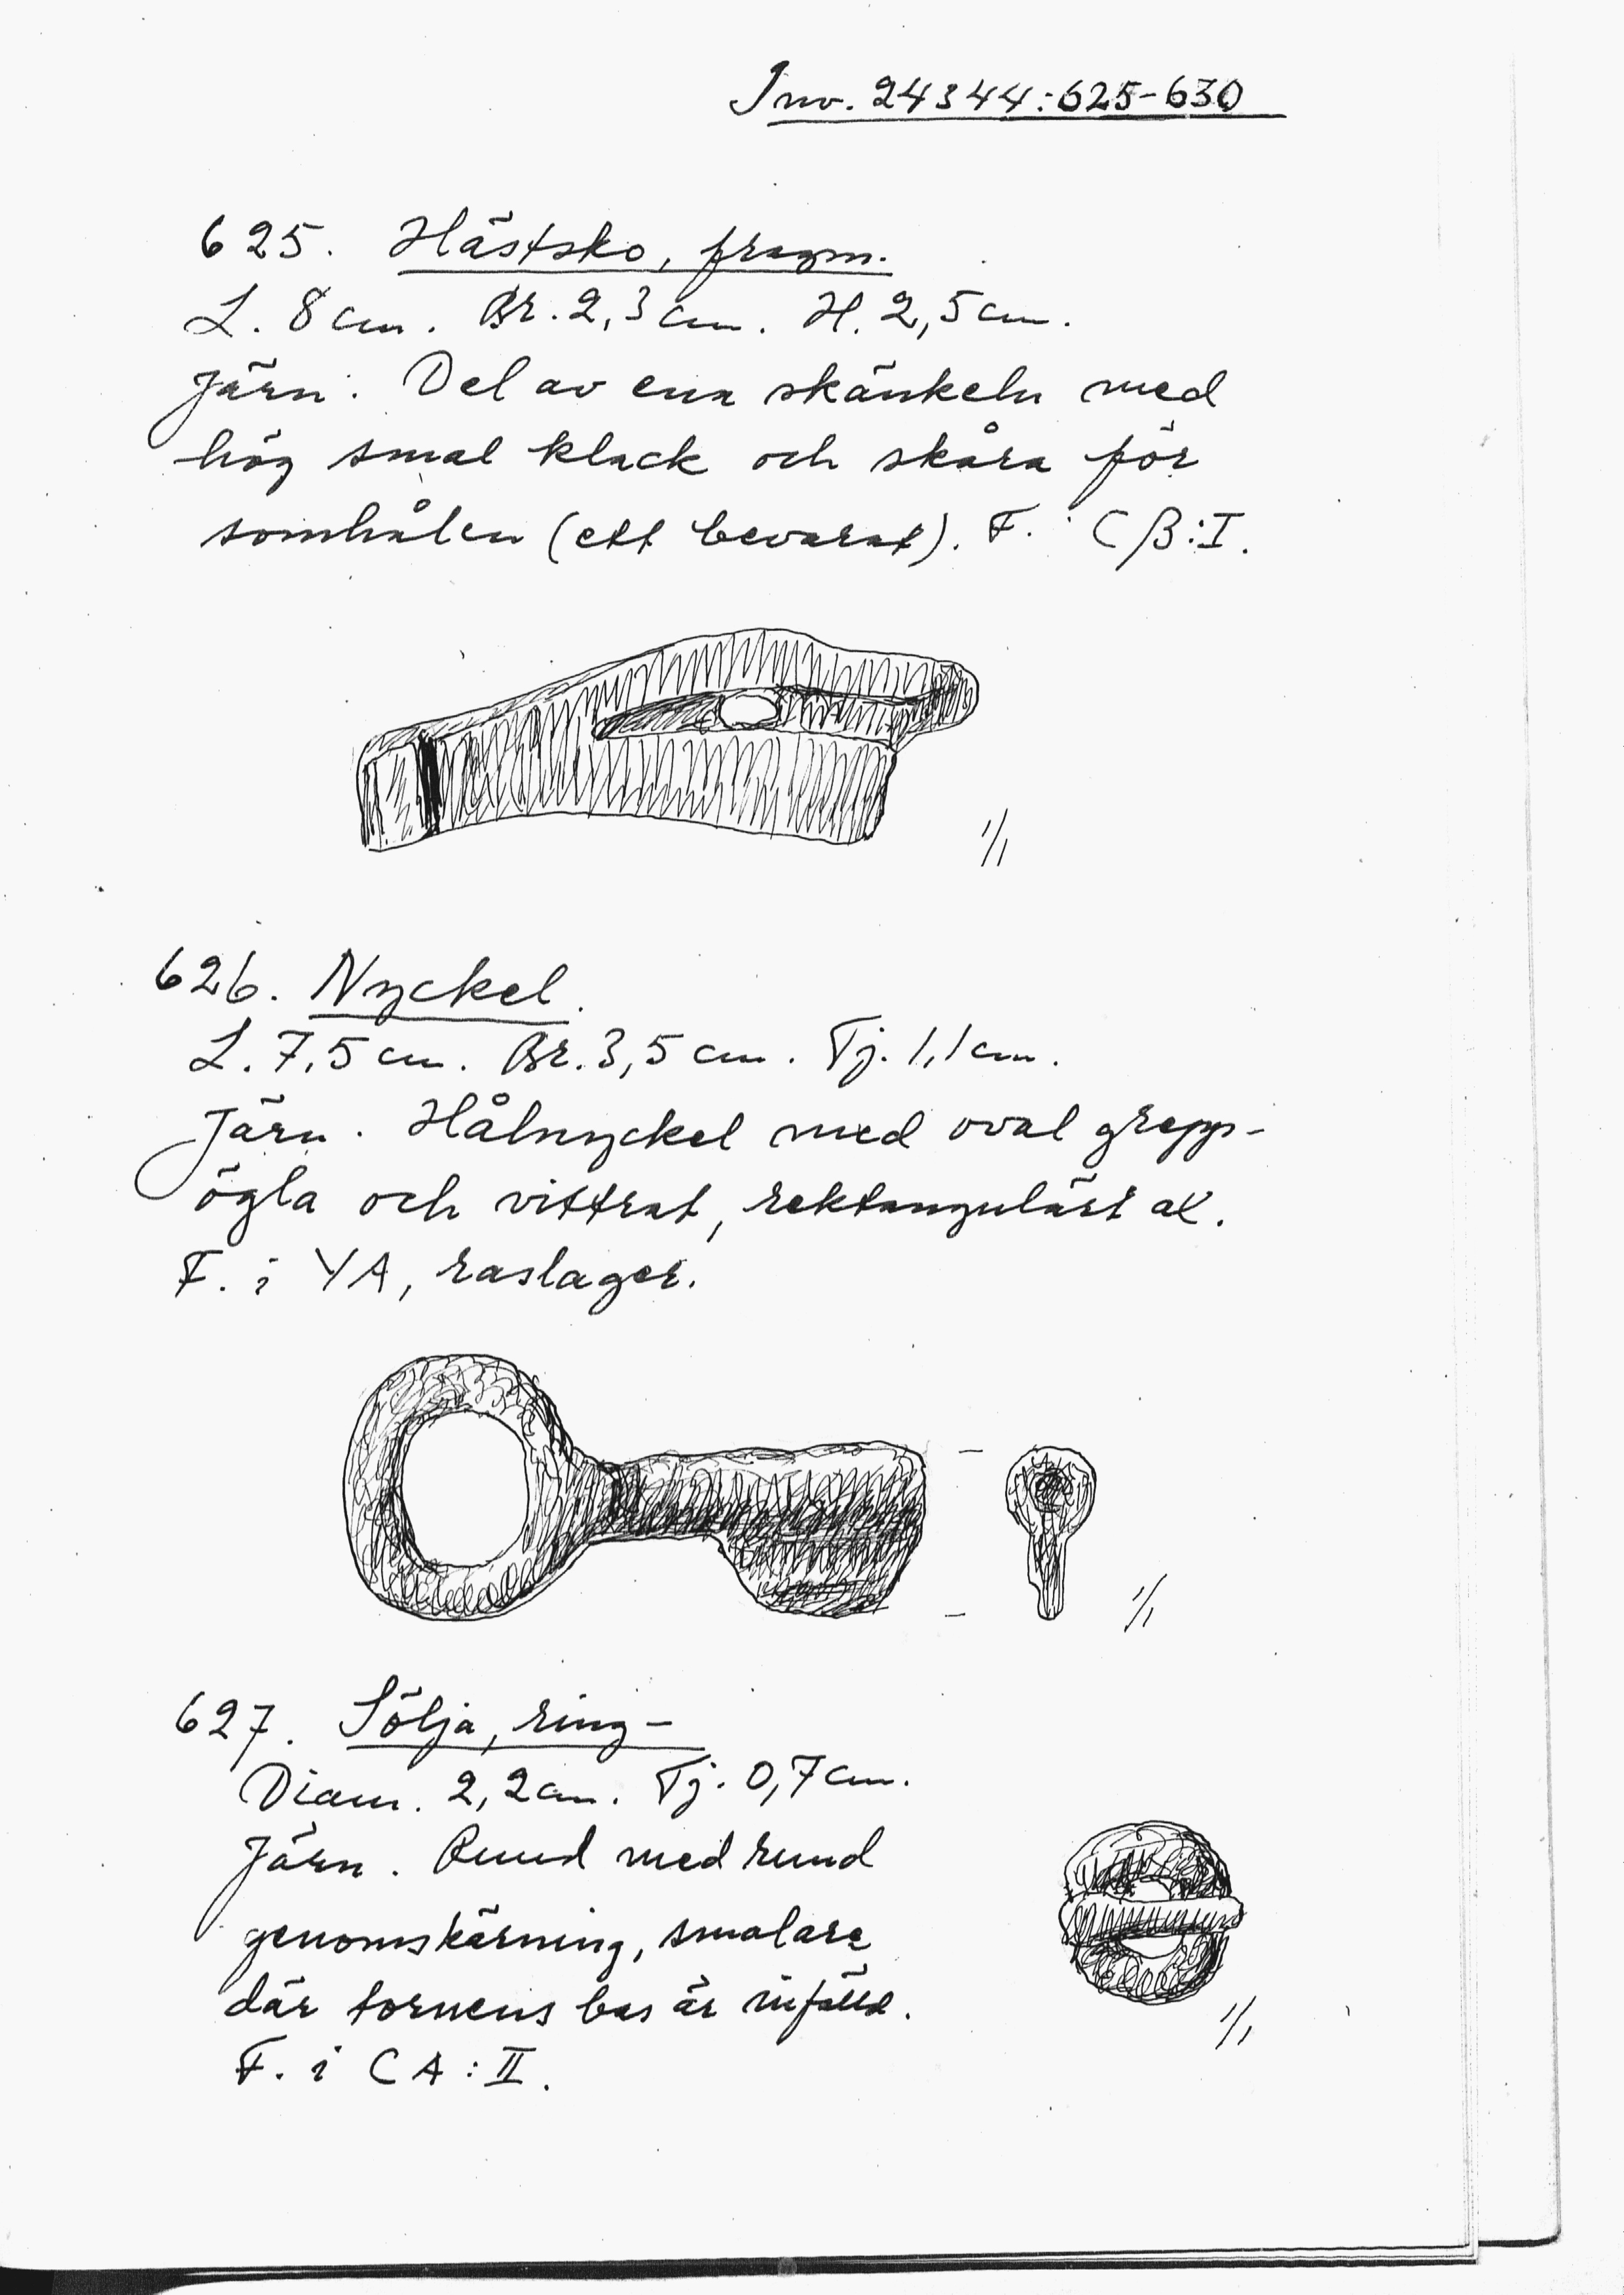 Inv. 24344:625-630
625. Hästsko, fragm.
L. 8 cm. Br. 2,3 cm. H. 2,5 cm.
Järn. Del av ena skänkeln med
hög smal klack och skåra för
sömhålen (ett bevarat). F. i CB:I.
1/1
626. Nyckel.
L. 7,5 cm. Br. 3,5 cm. Tj. 1,1 cm.
Järn. Hålnyckel med oval grepp-
ögla och vittrat, rektangulärt ax.
F. i YA, raslager.
1/1
627. Sölja, ring-
Diam. 2,2 cm. Tj. 0,7 cm.
Järn. Rund med rund
genomskärning, smalare
där tornens bas är infälld.
F. i CA:II.
1/1